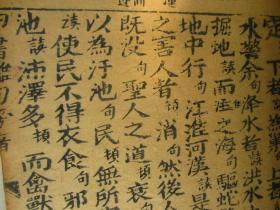 定下者為巢上
水警余句洚水者讀洪水
掘地讀而注之海句驅蛇
地中行句江淮河漢讀是
之害人者頓消句然後人
既没句聖人之道頓衰句
以為汙池句民頓無所
讀使民不得衣食句邪
池讀沛澤多頓而禽獸